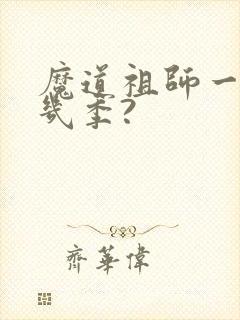 魔道祖師一
幾季?
齊華偉